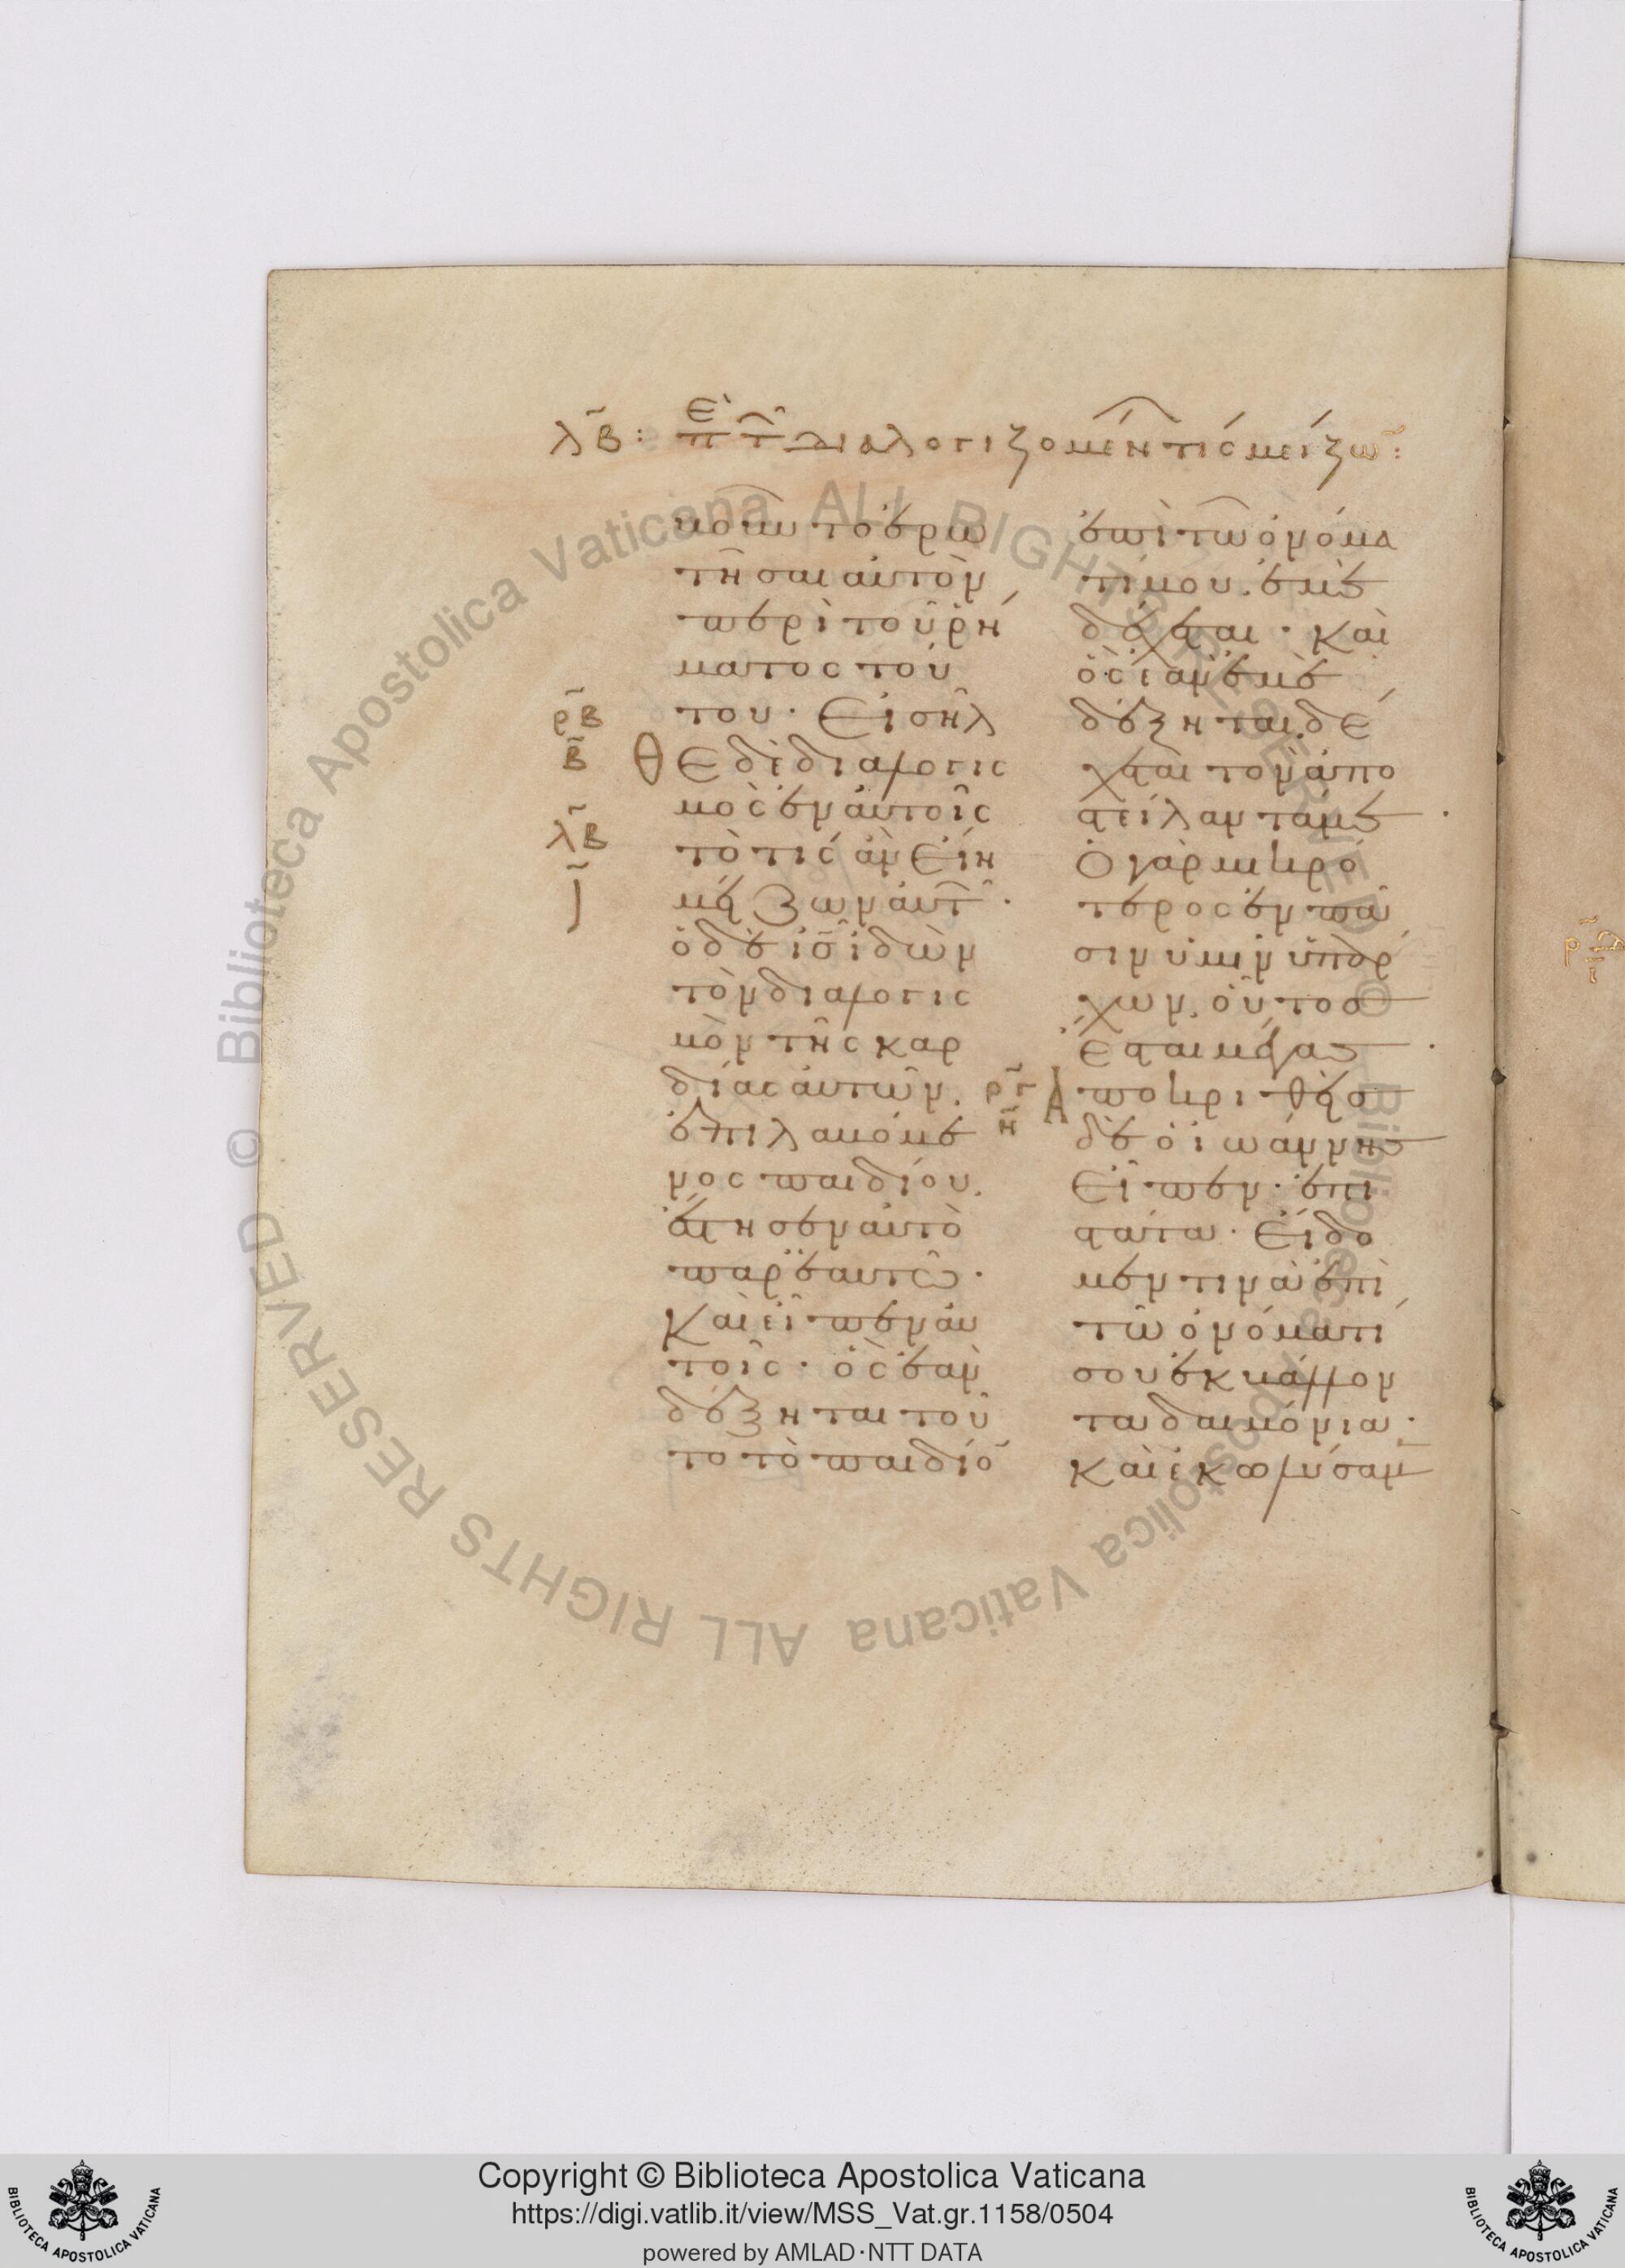 λ̃β: ἐπὶ τ̑ διαλογιζομέν̑ τίς μείζω̃:
μουν το ἐρω
τῆσαι αὐτὸν
περὶ τοῦ ῥή
ματος τού
του· Εἰσῆλ
ρ̃β
β̃
Θε δὲ διαλογις
μὸς ἐν αὐτοῖς
λ̃β
τὸ τίς ἂν εἴη
μείζων αὐτ̑·
ὁ δὲ ις̃ ἰδὼν
τὸν διαλογις
μὸν τῆς καρ
δίας αὐτῶν.
ἐπιλαβόμε
νος παιδίου.
ἔστησεν αὐτὸ
παρ' ἑαυτῶ·
Καὶ εἶπεν αὐ
τοῖς· ὃς ἐὰν
δέξηται τοῦ
το τὸ παιδίο̃
ἐπὶ τῶ ὀνόμα
τί μου. ἐμὲ
δέχεται· καὶ
ὃς ἐὰν ἐμὲ
δέξηται. δέ
χεται τὸν ἀπο
στείλαντά με·
Ὁ γὰρ μικρό
τερος ἐν πᾶ
σιν ὑμῖν ὑπάρ
χων. οὗτος
ἔσται μέγας·
η̃
Ἀποκριθεὶς
δὲ ὁ ἰωάννης
εἶπεν· ἐπι
στάτα· εἴδο
μέν τινα ἐπὶ
τῶ ὀνόματί
σου ἐκβάλλον
τα δαιμόνια·
Καὶ ἐκωλύσαμ̅
Copyright © Biblioteca Apostolica Vaticana
https://digi.vatlib.it/view/MSS_Vat.gr.1158/0504
powered by AMLAD·NTT DATA
BIBLIOTECA APOSTOLICA VATICANA
BIBLIOTECA APOSTOLICA VATICANA
© Biblioteca Apostolica Vaticana ALL RIGHTS RESERVED
© Biblioteca Apostolica Vaticana ALL RIGHTS RESERVED